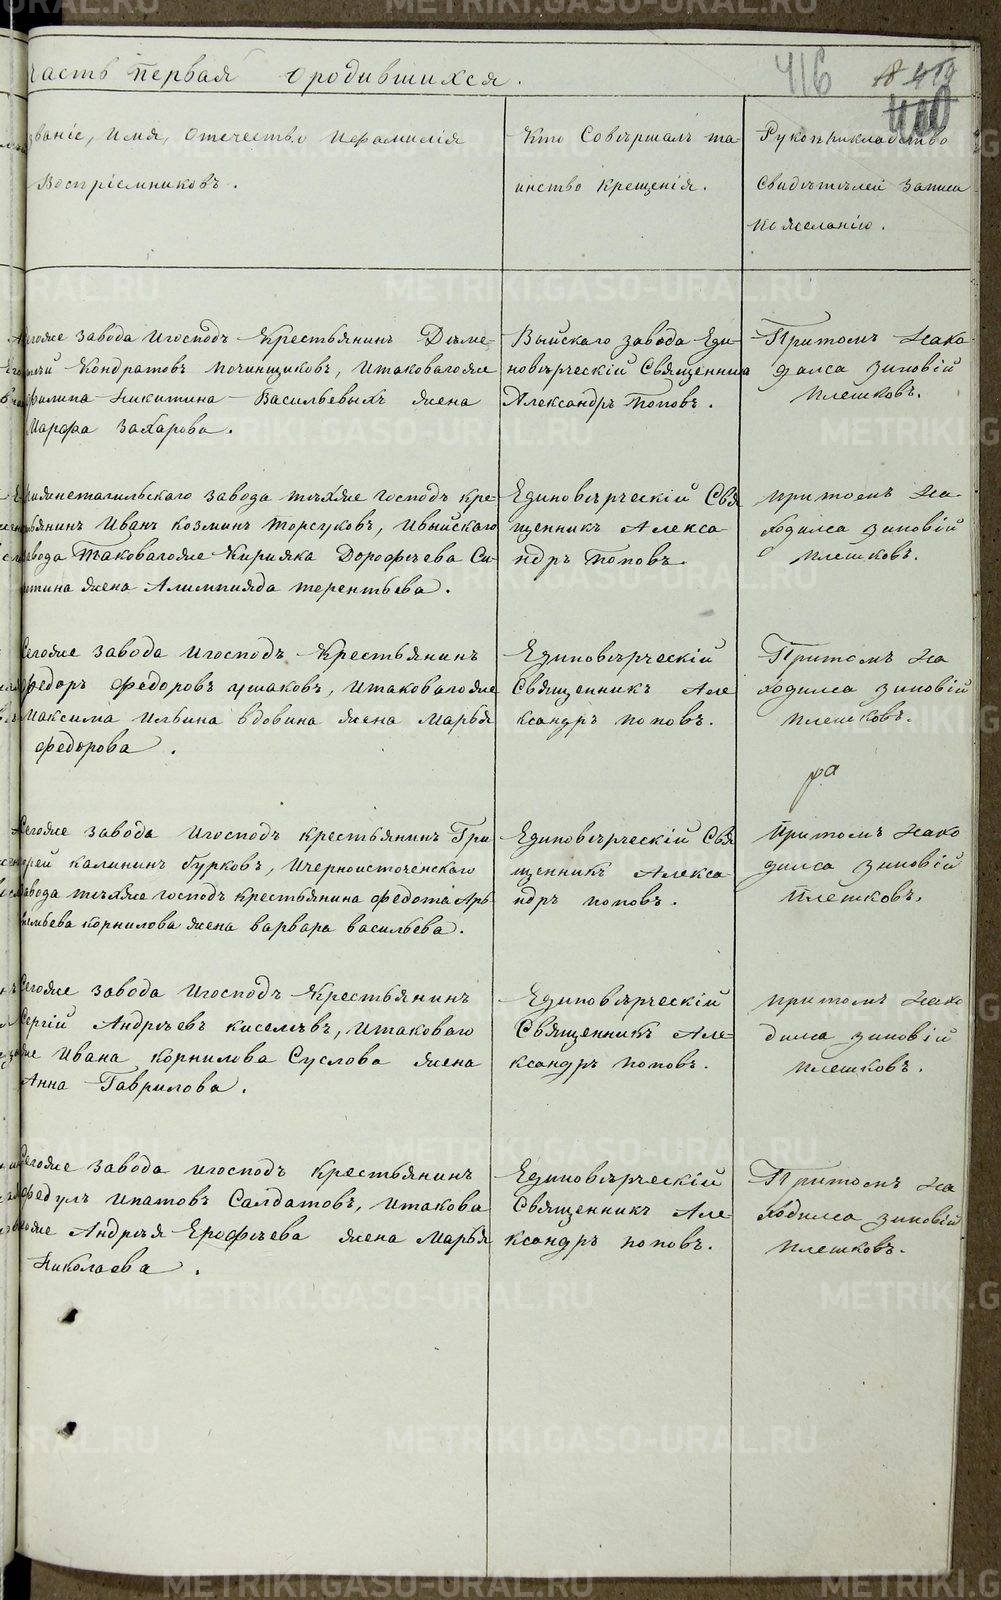 часть первая о родившихся.
416
званіе, имя, отечество и фамилія
Воспріемниковъ.
Кто Совершалъ та-
инство крещенія.
Рукоприкладство
Свидѣтѣлей записи
по желанію.
Сегоже завода и господъ Крестьянинъ Дьме-
Кондратовъ Починщиковъ, и таковагоже
филипа Никитина Васильевыхъ жена
Марфа Захарова.
Выйскаго завода Еди-
новѣрческій Священникъ
Александръ Поповъ.
Притомъ Нахо
дился зиновій
плешковъ.
Нижнетагильскаго завода тѣхже господъ кре-
стьянинъ Иванъ Козминъ Торсуковъ, и выйскаго
завода таковагоже Кирияка Дорофѣева Си-
тина жена Алимпияда терентьева.
Единовѣрческій Свя
щенникъ Алекса
ндръ Поповъ.
притомъ На-
ходился зиновій
плешковъ.
Сегоже завода и господъ Крестьянинъ
федоръ федоровъ ушаковъ, и таковагоже
Максима Ильина вдовина жена Марья
федорова.
Единовѣрческій
Священникъ Але
ксандръ поповъ.
Притомъ На
ходился зиновій
плешковъ.
Сегоже завода и господъ крестьянинъ Гри
горей калининъ Гурковъ, и черноисточенскаго
завода тѣхже господъ крестьянина федота Арт
корнилова жена варвара васильева.
Единовѣрческій Свя
щенникъ Алекса
ндръ поповъ.
Притомъ Нахо
дился зиновій
Плешковъ.
Сегоже завода и господъ Крестьянинъ
Сергій Андрѣевъ киселѣвъ, и таковаго
же Ивана корнилова Суслова жена
Анна Гаврилова.
Единовѣрческій
Священникъ Але-
ксандръ поповъ.
притомъ Нахо
дился зиновій
плешковъ.
Сегоже завода и господъ крестьянинъ
федулъ ипатовъ Салдатовъ, и такова
гоже Андрѣя Ерофѣева жена Марья
Николаева.
Единовѣрческій
Священникъ Але-
ксандръ поповъ.
Притомъ На
ходился зиновій
плешковъ.
METRIKI.GASO-URAL.RU